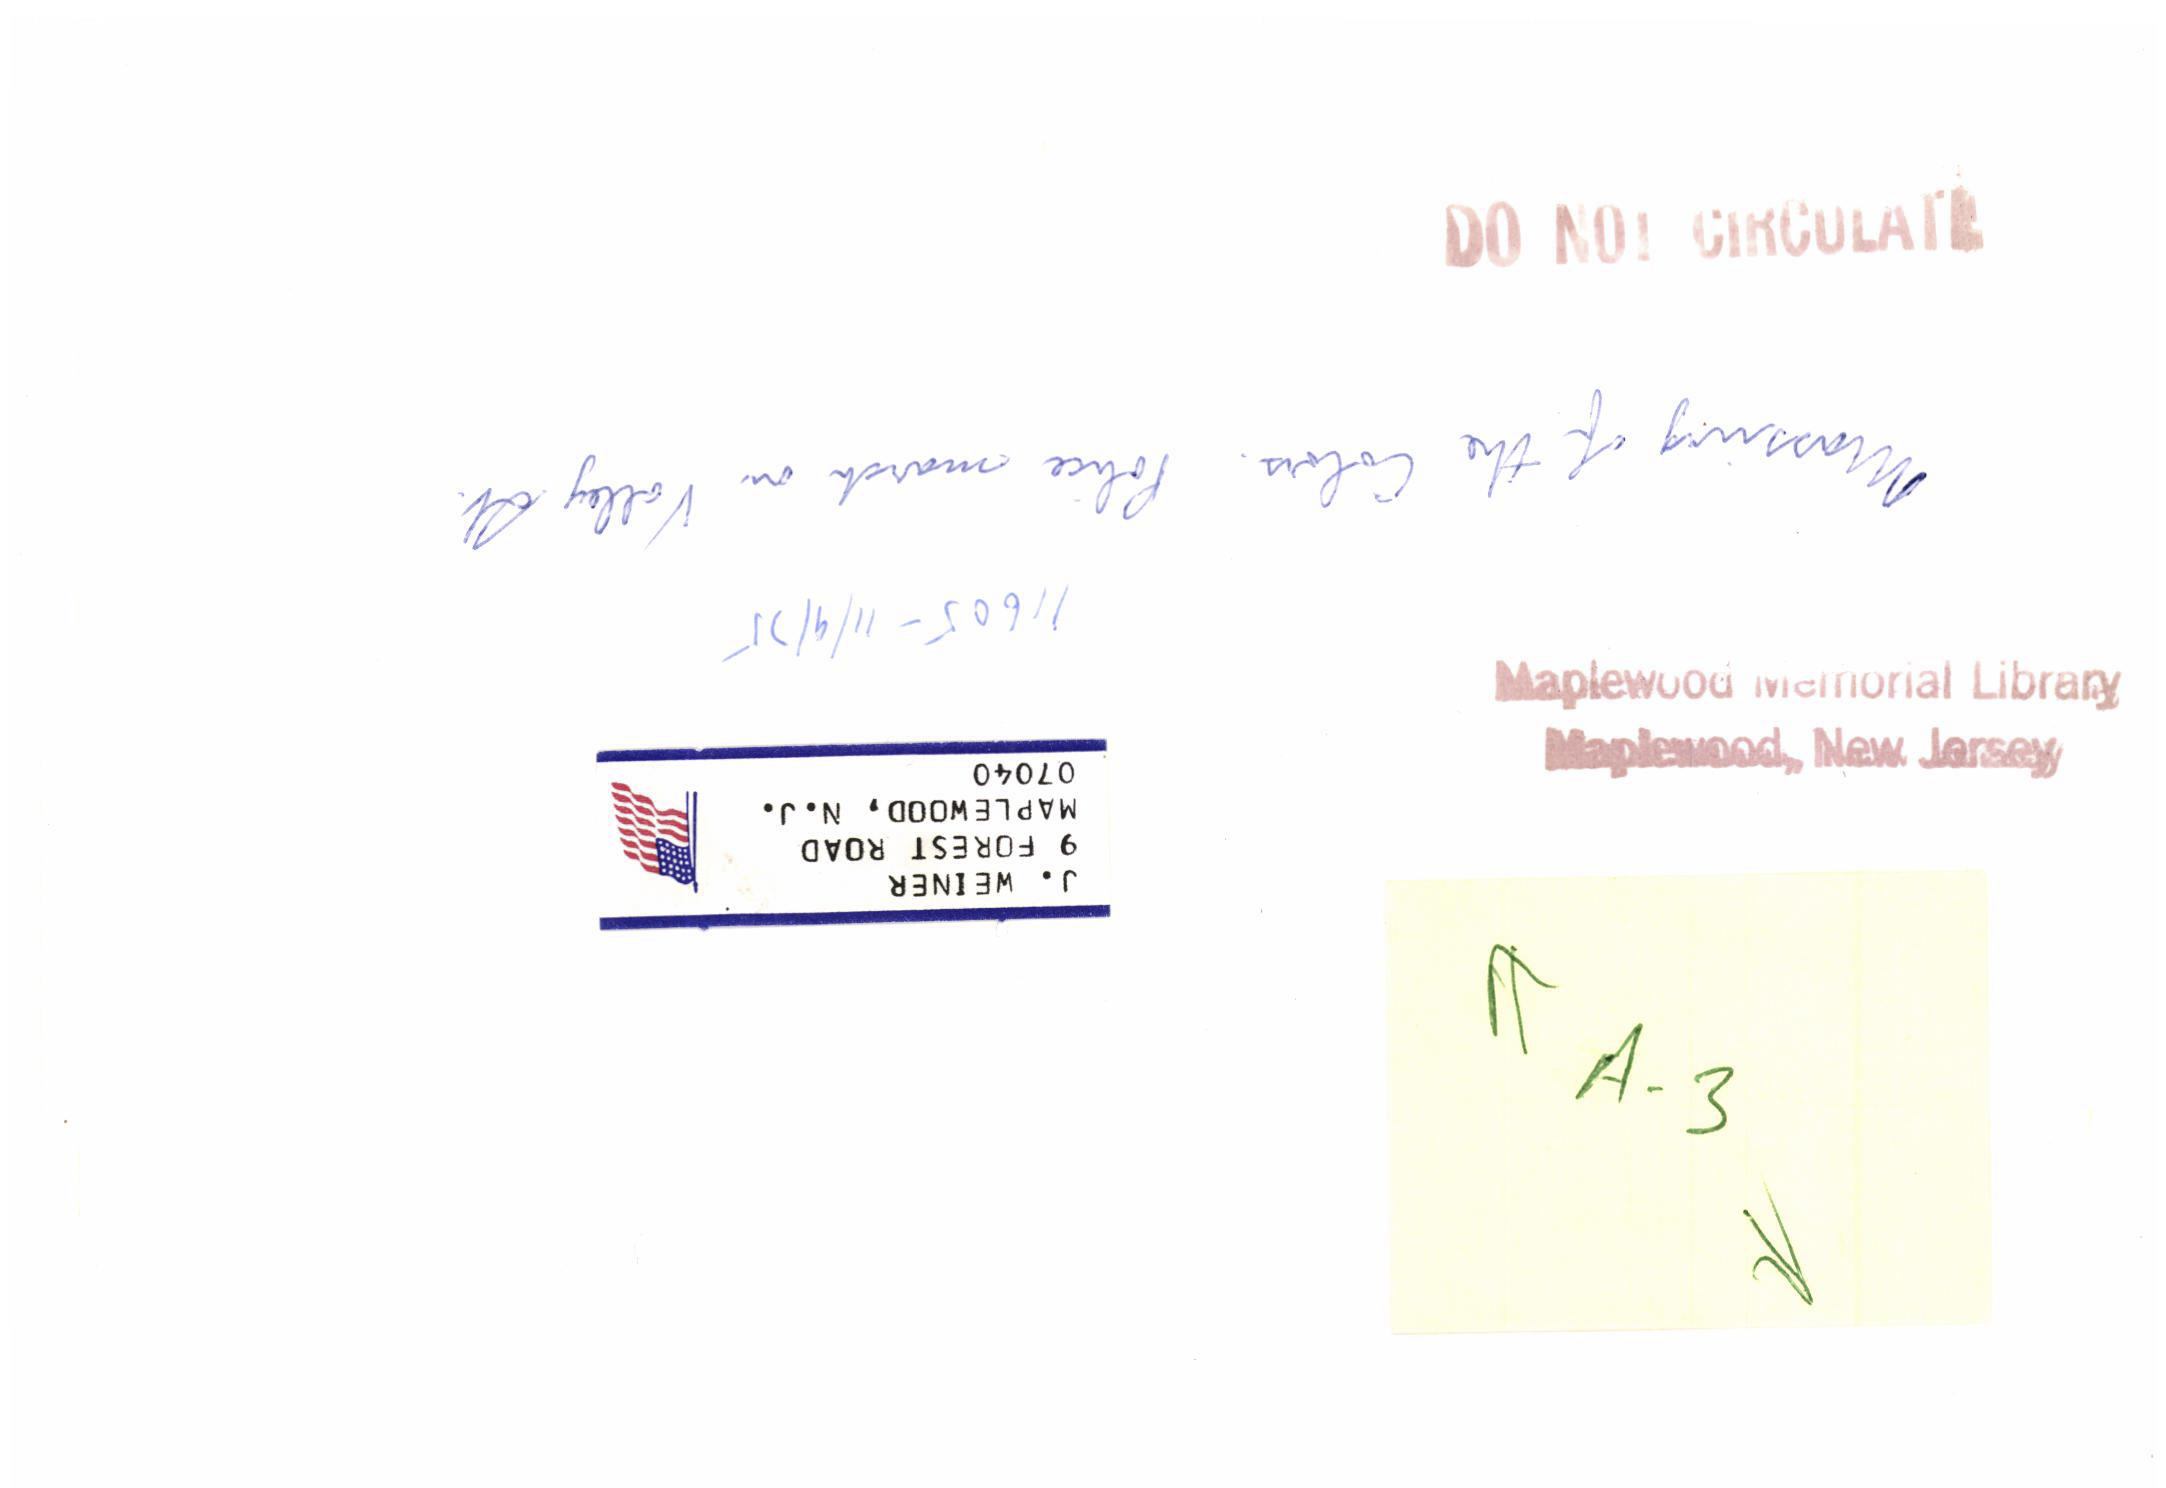 DO NOT CIRCULATE
Massing of the Colors. Police march on Valley St.
11605 - 11/9/75
Maplewood Memorial Library
Maplewood, New Jersey
J. WEINER
9 FOREST ROAD
MAPLEWOOD, N.J.
07040
A-3